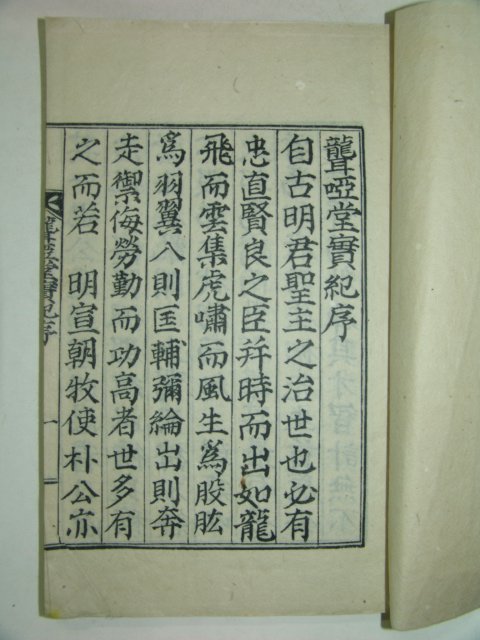 聾啞堂實紀序
自古明君聖主之治世也必有
忠直賢良之臣幷時而出如龍
飛而雲集虎嘯而風生爲股肱
爲羽翼入則匡輔彌綸出則奔
走禦侮勞勤而功高者世多有
之而若 明宣朝牧使朴公亦
聾啞堂實紀序
一